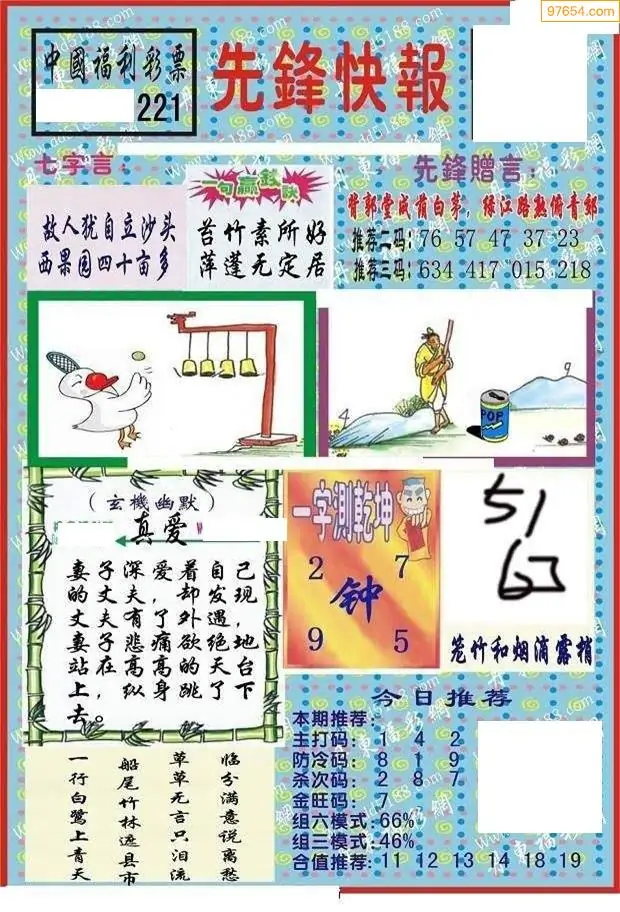 97654.com
中國福利彩票
221
先鋒快報
七字言:
故人犹自立沙头
西果园四十亩多
一句赢钱诀
苔竹素所好
萍蓬无定居
先鋒贈言:
背郭堂成荫白茅,缘江路熟俯青郊
推荐二码: 76 57 47 37 23
推荐三码: 634 417 015 218
4
9
POP
(玄機幽默)
真爱
妻子深爱着自己
的丈夫,却发现,
丈夫有了外遇,
妻子悲痛欲绝地
站在高高的天台
上,纵身跳了下
去。
一字測乾坤
2 7
钟
9 5
51
笼竹和烟滴露梢
临分满意说离愁
草草无言只泪流
船尾竹林遮县市
一行白鹭上青天
今日推荐
本期推荐:
主打码: 1 4 2
防冷码: 8 1 9
杀次码: 2 8 7
金旺码: 7
组六模式:66%
组三模式:46%
合值推荐:11 12 13 14 18 19